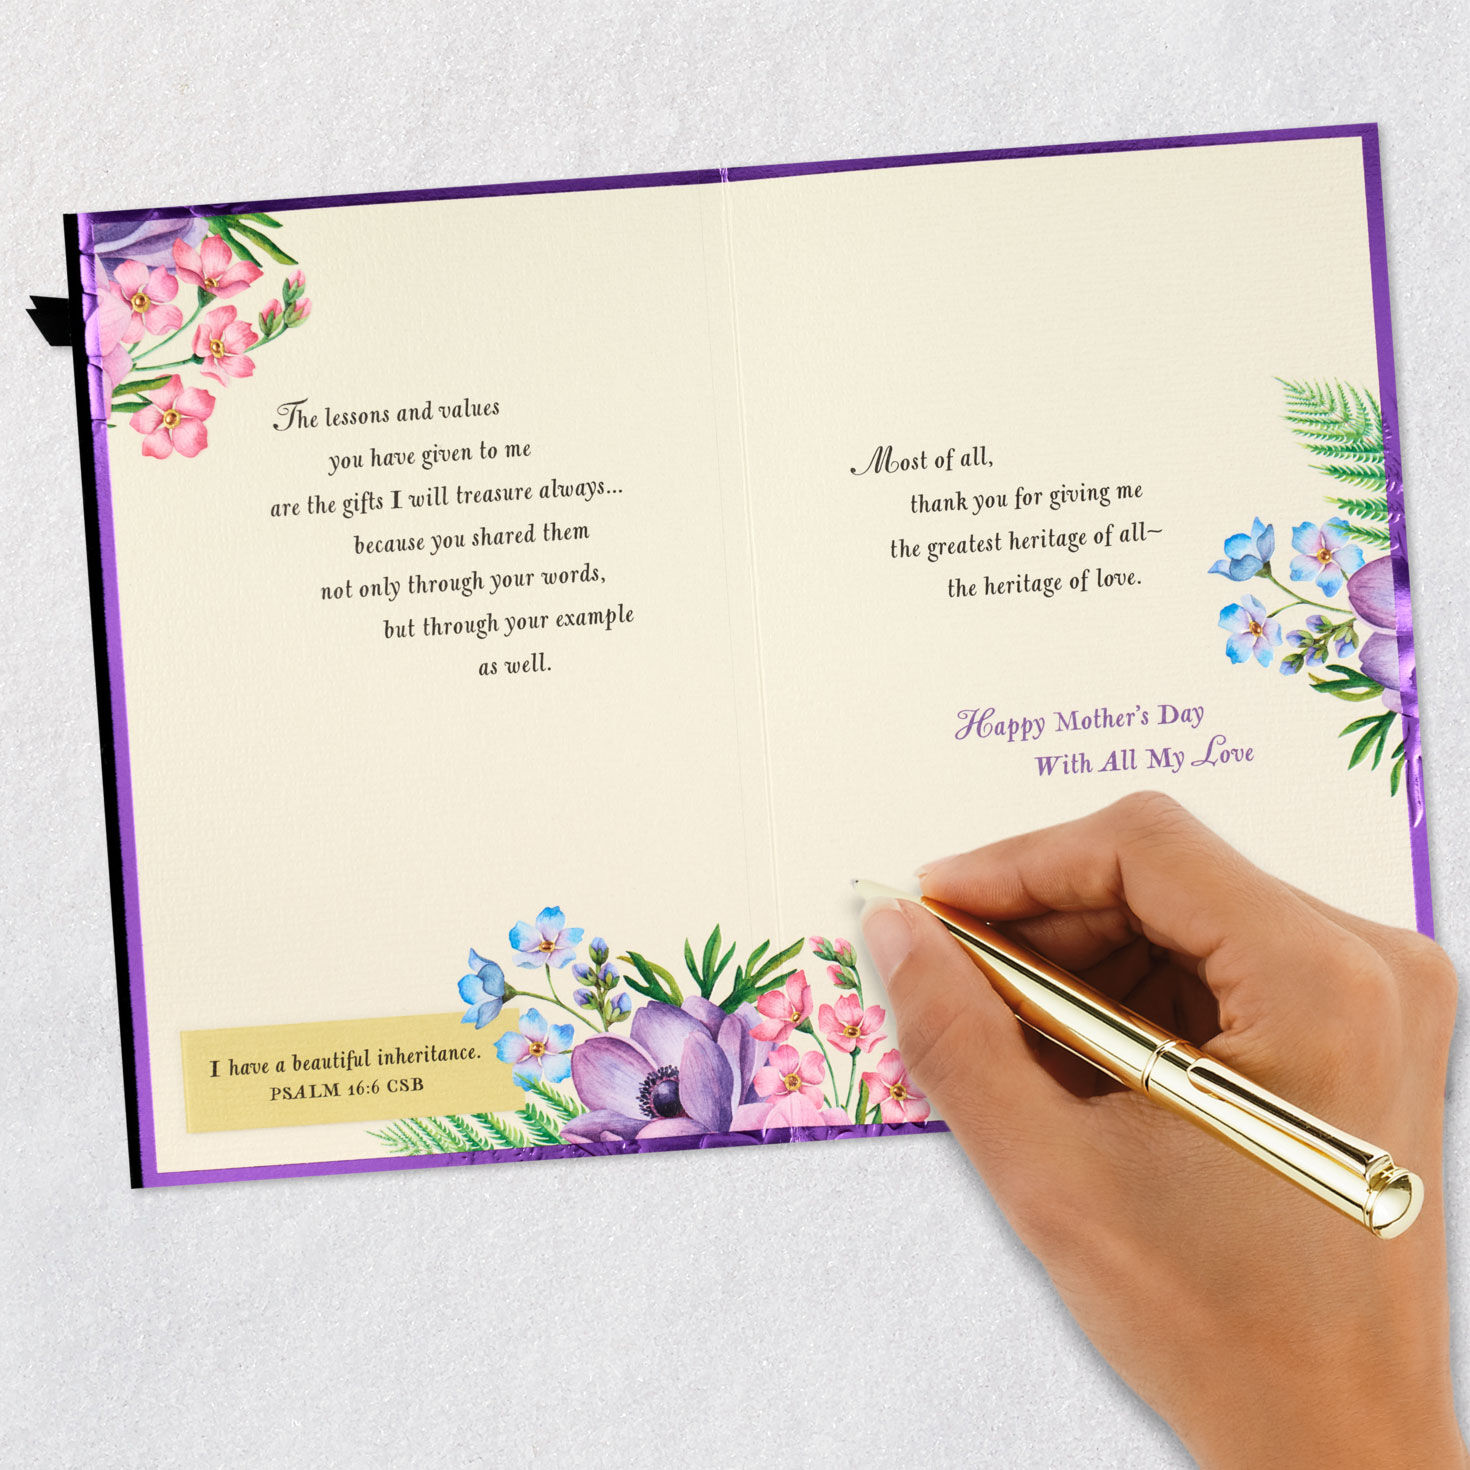 The lessons and values
you have given to me
are the gifts I will treasure always...
because you shared them
not only through your words,
but through your example
as well.
I have a beautiful inheritance.
PSALM 16:6 CSB
Most of all,
thank you for giving me
the greatest heritage of all~
the heritage of love.
Happy Mother's Day
With All My Love